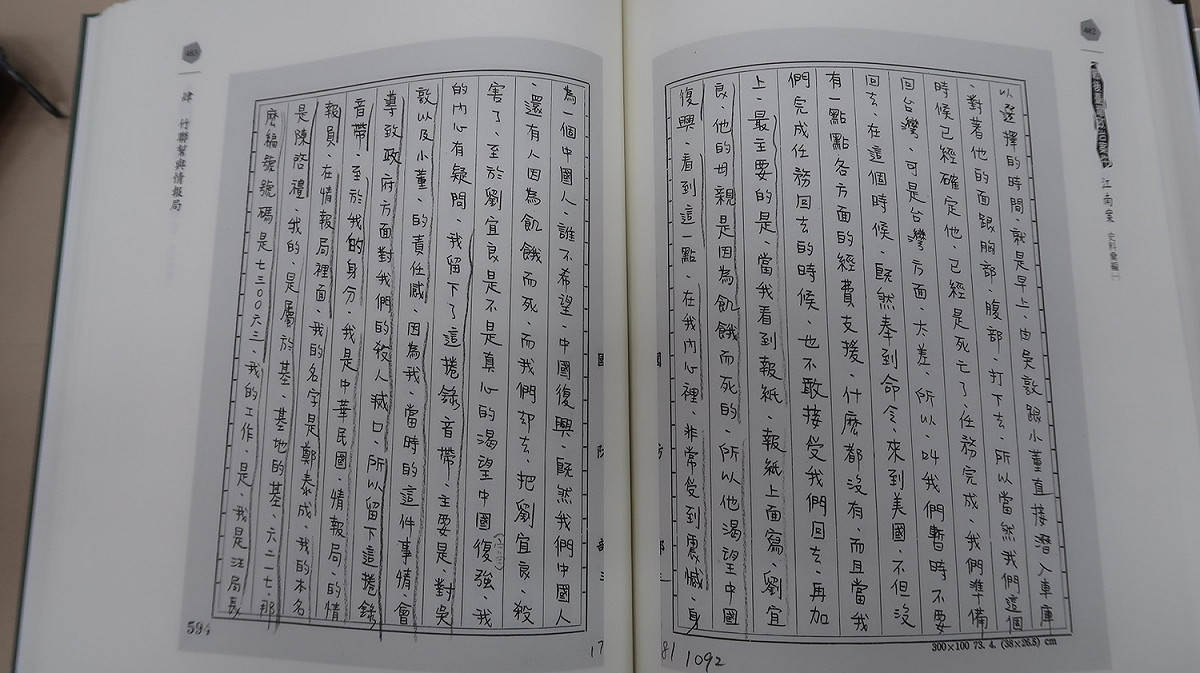 482
江南案 史料彙編
以選擇的時間、就是早上、由吳敦跟小董直接潛入車庫
、對著他的面跟胸部、腹部、打下去、所以當然我們這個
時候已經確定他、已經是死亡了、任務完成、我們準備
回台灣、可是台灣方面、大差、所以、叫我們暫時不要
回去、在這個時候、既然奉到命令、來到美國、不但沒
有一點點各方面的經費支援、什麼都沒有、而且當我
們完成任務回去的時候、也不敢接受我們回去、再加
上、最主要的是、當我看到報紙、報紙上面寫、劉宜
良、他的母親是因為飢餓而死的、所以他渴望中國
復興、看到這一點、在我內心裡、非常受到震憾、身
300×100 73. 4. (38×26.5) cm
81 1092
483
肆 竹聯幫與情報局
為一個中國人、誰不希望、中國復興、既然我們中國人
、還有人因為飢餓而死、而我們却去、把劉宜良、殺
害了、至於劉宜良是不是真心的渴望中國復強、我
的內心有疑問、我留下了這捲錄音帶、主要是、對吳
敦以及小董、的責任感、因為我、當時的這件事情、會
導致政府方面對我們的殺人滅口、所以留下這捲錄
音帶、至於我的身分、我是中華民國、情報局、的情
報員、在情報局裡面、我的名字是鄭泰成、我的本名
是陳啓禮、我的、是屬於基、基地的基、六二一七、那
麼編號號碼是七三00六三、我的工作、是、我是汪局長
國防部
17
594